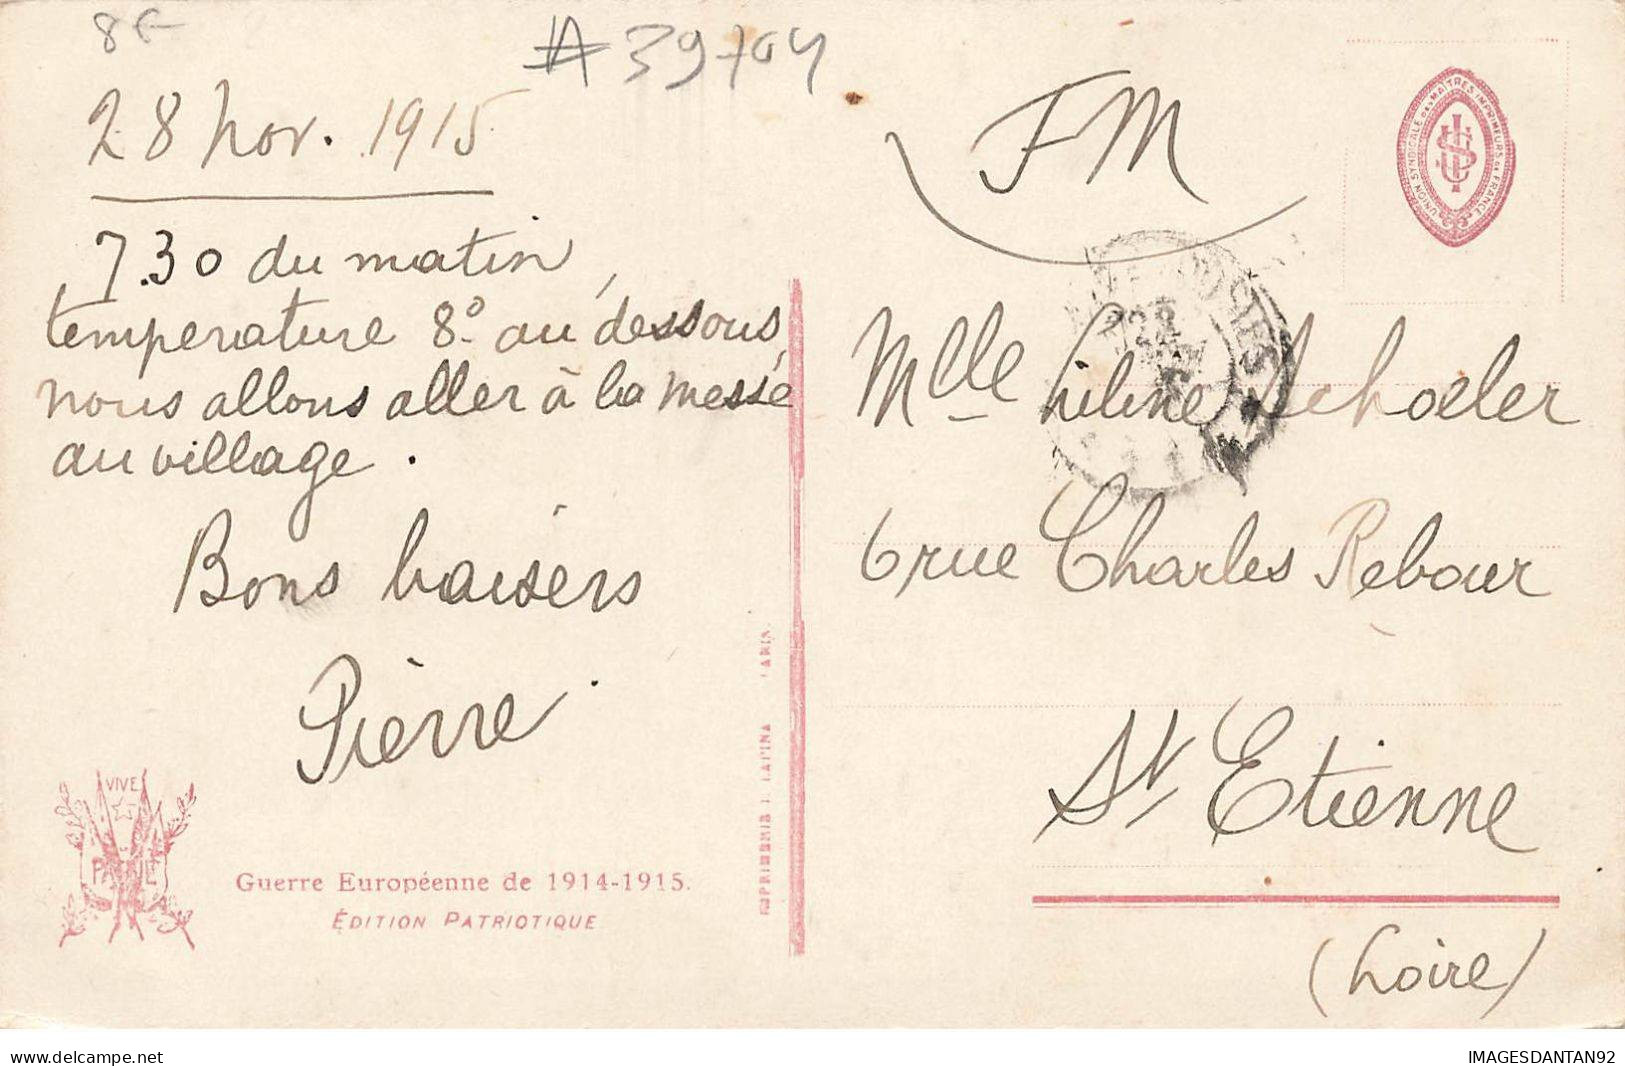 8 F
#39704
28 Nov. 1915
7.30 du matin,
temperature 8° au dessous,
nous allons aller à la messe
au village.
Bons baisers
Pierre.
VIVE
Guerre Européenne de 1914-1915.
ÉDITION PATRIOTIQUE
FM
UNION SYNDICALE DES MAITRES IMPRIMEURS DE FRANCE
Mlle Liline Schoeler
6 rue Charles Rebour
St Etienne
(Loire)
delcampe.net
IMAGESDANTAN92